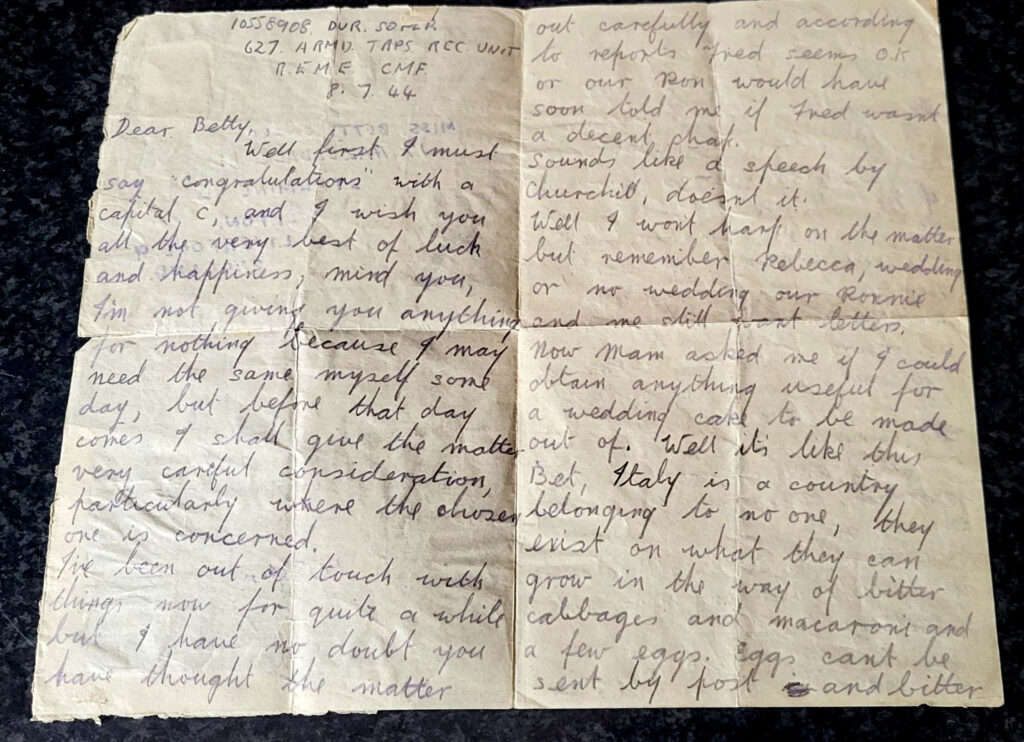 10558908. DVR. SOMER
627. ARMD. TRPS REC. UNIT
R.E.M.E. CMF
8. 7. 44
Dear Betty,
Well first I must
say "congratulations" with a
capital C, and I wish you
all the very best of luck
and happiness, mind you,
I'm not giving you anything
for nothing because I may
need the same myself some
day, but before that day
comes I shall give the matter
very careful consideration,
particularly where the chosen
one is concerned.
I've been out of touch with
things now for quite a while
but I have no doubt you
have thought the matter
out carefully and according
to reports Fred seems O.K
or our Ron would have
soon told me if Fred wasnt
a decent chap.
Sounds like a speech by
Churchill, doesnt it.
Well I wont harp on the matter
but remember Rebecca, wedding
or no wedding our Ronnie
and me still want letters.
Now Mam asked me if I could
obtain anything useful for
a wedding cake to be made
out of. Well its like this
Bet, Italy is a country
belonging to no one, they
exist on what they can
grow in the way of bitter
cabbages and macaroni and
a few eggs. Eggs cant be
sent by post and bitter